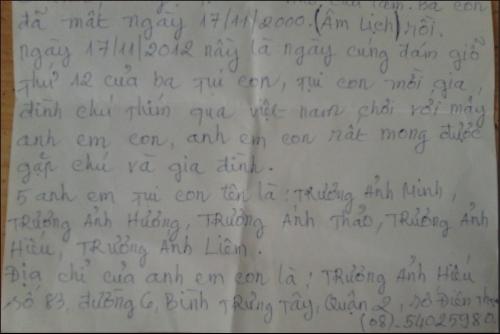 Ba con
đã mất ngày 17/11/2000. (Âm Lịch) rồi.
ngày 17/11/2012 này là ngày cúng đám giỗ
thứ 12 của ba tụi con, tụi con mời gia
đình chú thím qua việt nam chơi với mấy
anh em con, anh em con rất mong được
gặp chú và gia đình.
5 anh em tụi con tên là: Trương Ảnh Minh,
Trương Ảnh Hương, Trương Ảnh Thảo, Trương Ảnh
Hiếu, Trương Ảnh Liêm.
Địa chỉ của anh em con là: Trương Ảnh Hiếu
số 83, đường 6, Bình Trưng Tây, Quận 2, số Điện
(08). 54025980